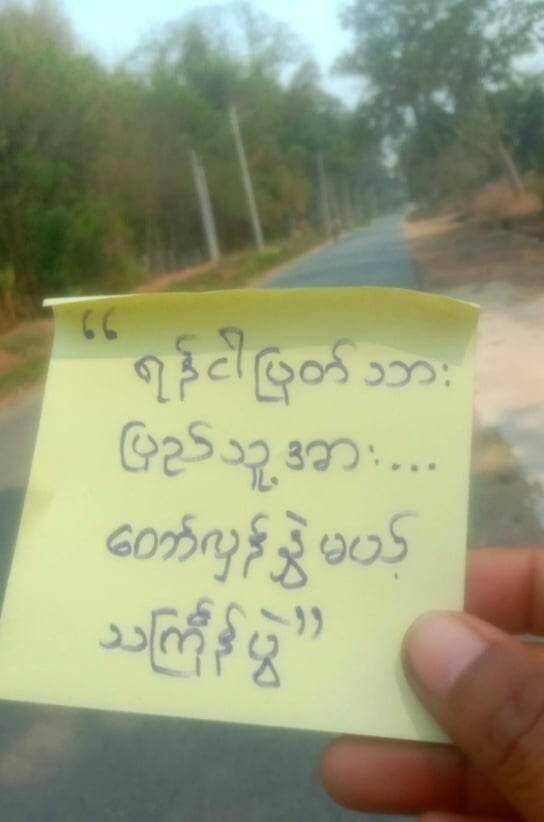 “ ရန်ငါပြတ်သား
ပြည်သူ့အား...
တော်လှန်နွှဲမယ့်
သင်္ကြန်ပွဲ”